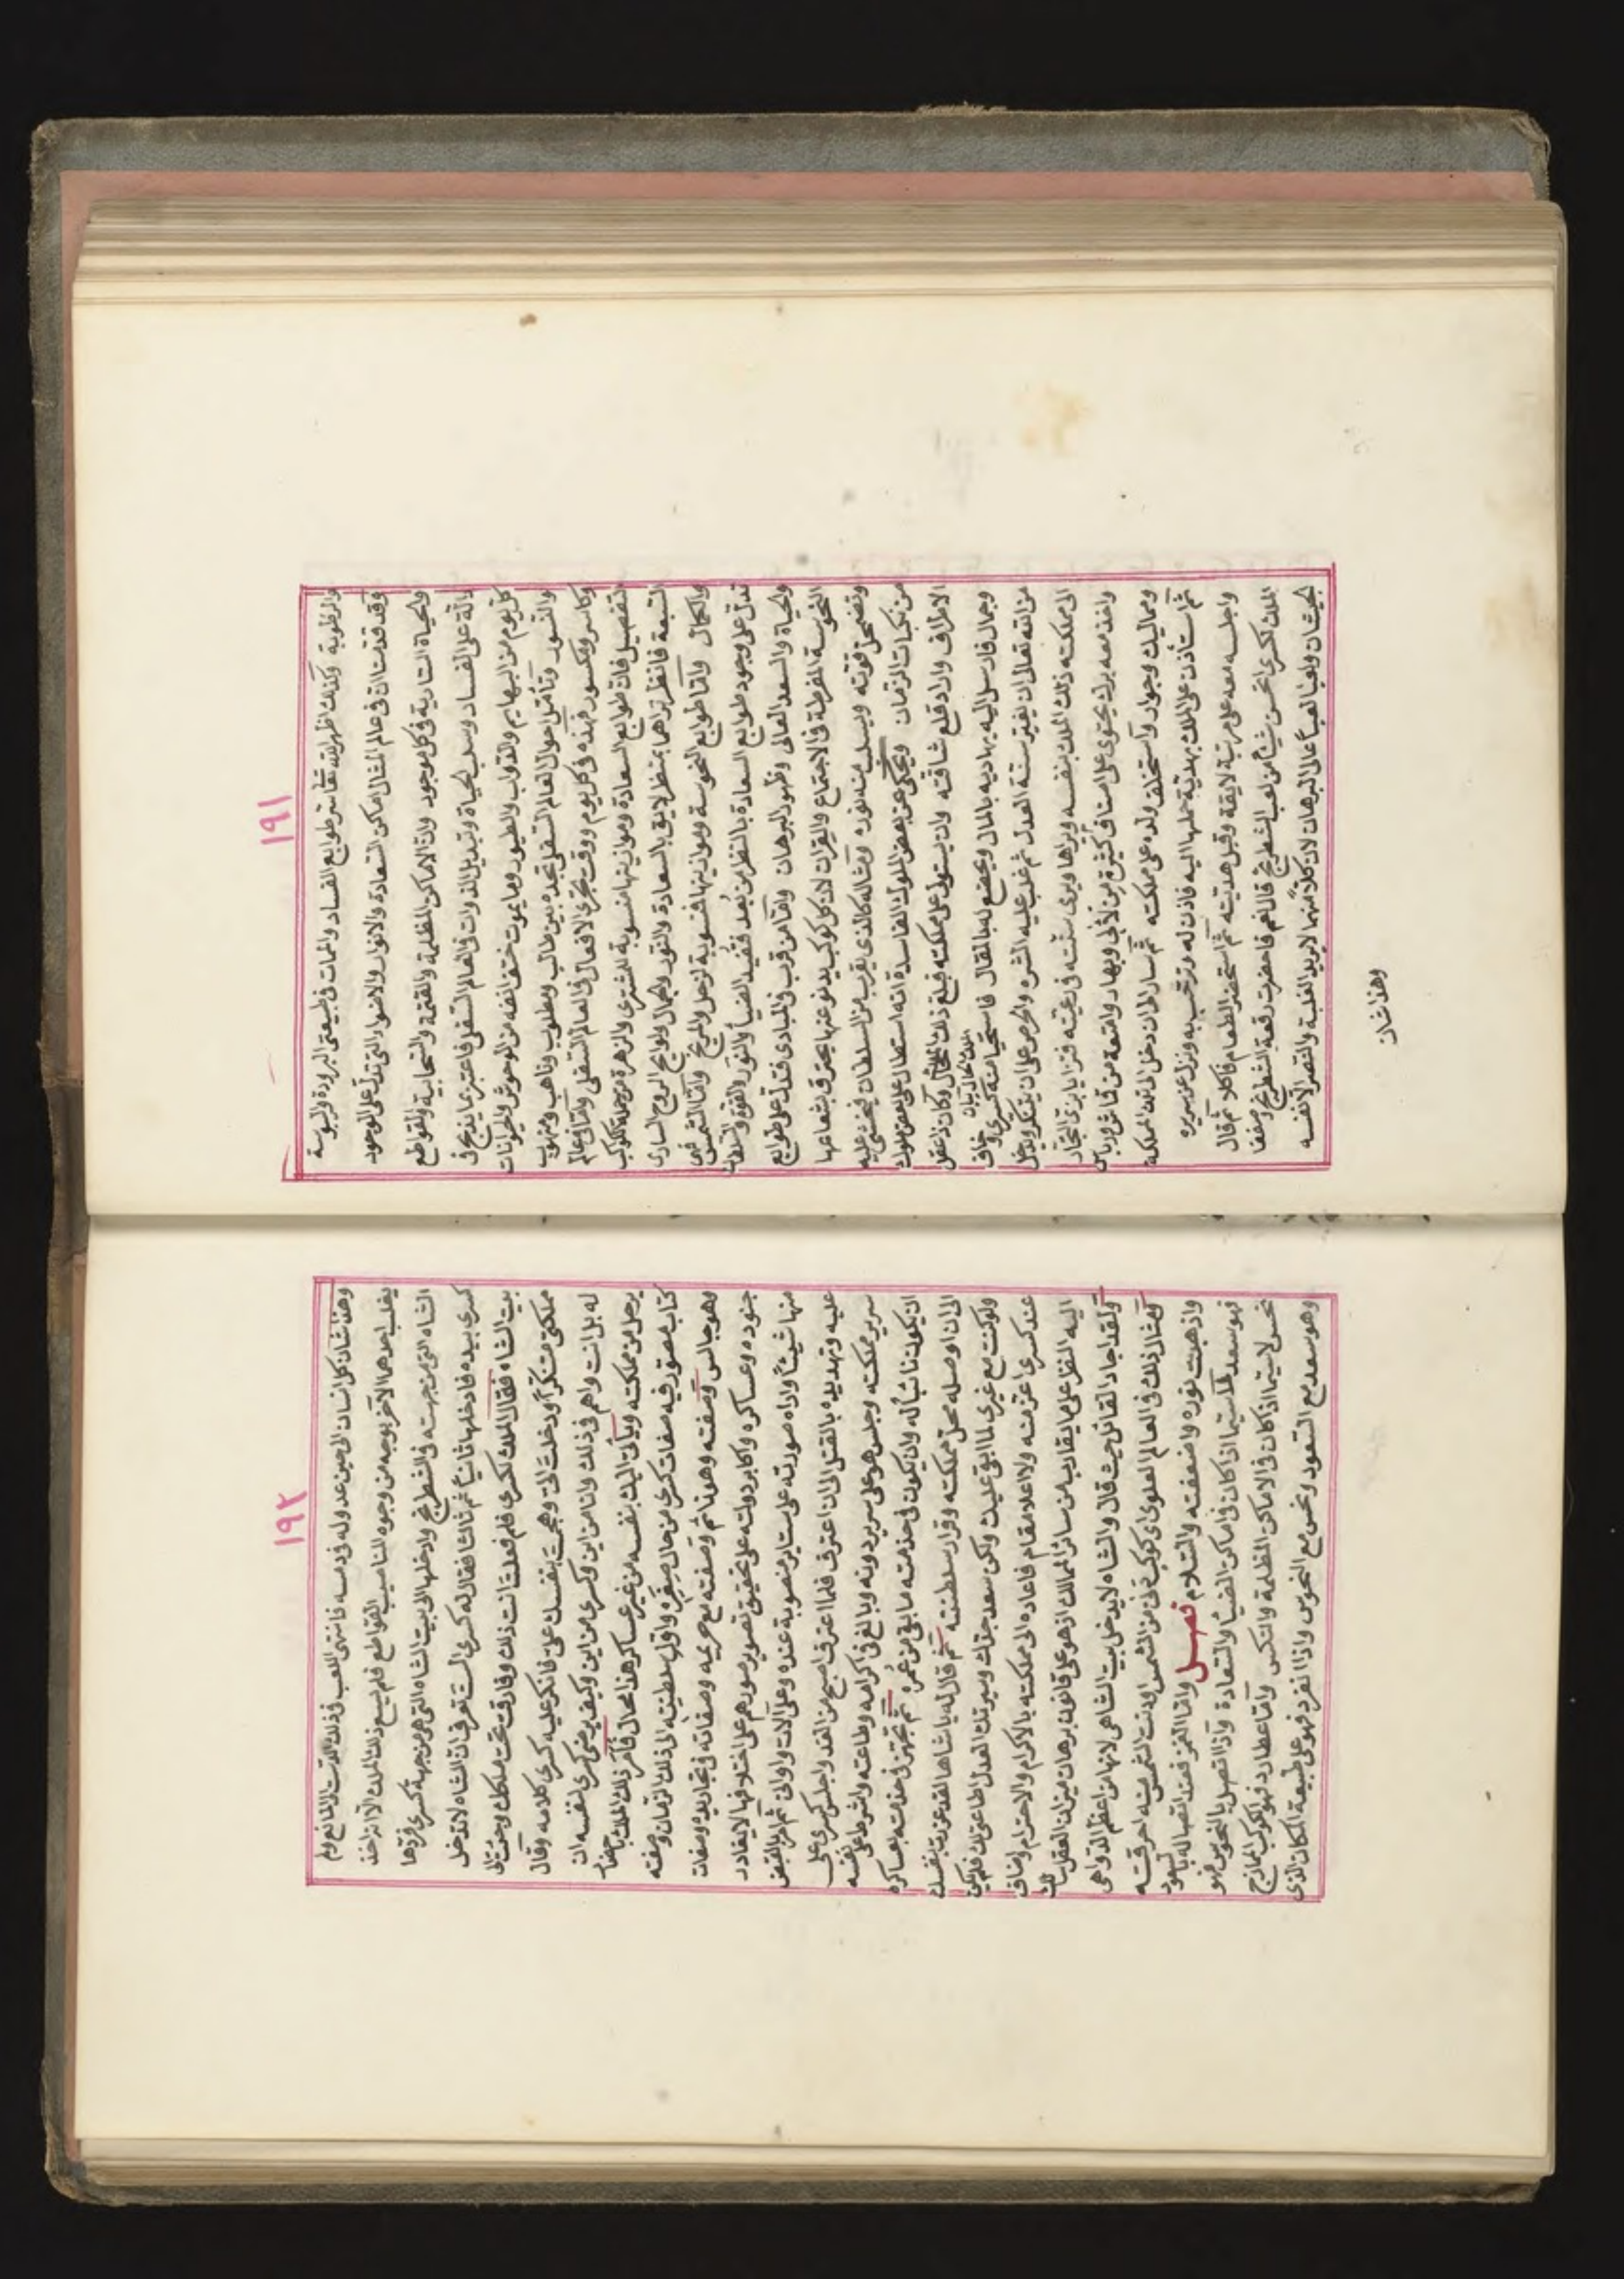 ١٩١
والرطوبة وكذلك اظهر الله تعالى سر طوابع الفساد والممات في طبيعتى البرودة واليبوسة
وقد قدمت ان في عالم المثال اماكن السعادة والانوار والاضواء التى تدل على الوجود
والحياة السارية في كل موجود وان الاماكن المظلمة والقتمة والسحابية والقواطع
دالة على الفساد وسلب الحياة وتبديل الذوات في العالم السفلى فاعتبر ما يذبح في
كل يوم من البهايم والدواب والطيور وما يموت حتف انفه من الوحوش والحيوانات
والنسور وتأمل احوال العالم السفلى تجده بين طالب ومطلوب وناهب ومنهوب
وكاسر ومكسور فهذه في كل يوم ووقت تجرى الافعال في العالم السفلى واما في عالم
التفصيل فان طوابع السعادة وموازينها منسوبة للمشترى والزهرة من جملة الكواكب
السبعة فانظر تراهما بمنظر لايق بالسعادة والنور والجمال ولوايح الروح السارى
والكمال واما طوابع النحوسة وموازينها فمنسوبة لزحل والمريخ واما الشمس فهى
تدل على وجود طوابع السعادة بالنظر من بُعد فتفيد الضيا والنور والقوة والسلطان
والحياة والسعد العالى وظهور البرهان واما من قرب في المبادى فتدل على طوابع
النحوسة المفرطة في الاجتماع والقران لان كل كوكب يدنو عنها يحترق بشعاعها
وتضمحل قوته ويسلب منه نوره ومثاله كالذى يقرب من السلطان فيخشى عليه
من نكبات الزمان ويحكى عن بعض الملوك الفاسدة انه استطال على بعض ملوك
الاطراف واراد قلع شافته وان يستولى على مملكته فبلغ ذلك الملك وكان ذا عقل
وجمال فارسل اليه يهاديه بالمال ويخضع له بالمقال فاستحيا منه كسرى وخاف
من الله تعالى ان يغير سنة العدل ثم غلب عليه الشره والحرص على ان يتنكر ويدخل
الى مملكته ذلك الملك بنفسه ويراها ويرى سنته في رعيته فتزايا بزى التجار
واخذ معه برك يحتوى على اصناف كثيرة من لآلى وبهار وامتعة من قماش ورياش
ومماليك وجوار واستخلف ولده على مملكته ثم سار الى ان دخل الى تلك المملكة
ثم استأذن على الملك بهدية حملها اليه فاذن له وترحب به ونزل عن سريره
واجلسه معه على مرتبة لايقة وقبل هديته ثم استحضر الطعام فاكلا ثم قال
الملك لكسرى اتحسن شيئا من لعب الشطرنج قال نعم فاحضرت رقعة الشطرنج وصففا
الجيشان ولعبا لعبا عالى البرهان لان كلا منهما لا يريد الغلبة والنصر الا لنفسه
وهذا شان
١٩٢
وهذا شان كل انسان الى حين عدوله في رمسه فانتهى اللعب في ذلك الدست الى المانع ولم
يغلب احدهما الآخر بوجه من وجوه المناصيب القواطع فلم يسع ذلك الملك الا ان اخذ
الشاه التى من جهته في الشطرنج وادخلها الى بيت الشاه التى هى من جهة كسرى فردها
كسرى بيده فادخلها ثانيا ثم ثالثا فقال له كسرى الست تعرف ان الشاه لا تدخل
بيت الشاه فقال الملك لكسرى فلم فعلت انت ذلك وفارقت تخت ملكك وجئت الى
مملكتى متنكرا ودخلت الى وهجمت بنفسك على فانكر عليه كسرى كلامه وقال
له بل انت واهم في ذلك وانا من اين وكسرى من اين وكيف يرضى كسرى لنفسه ان
يرحل من مملكته ويأتى اليك بنفسه من غير عساكر هذا محال فأمر ذلك الملك باحضار
كتاب مصور فيه صفات كسرى من حال صغره واول سلطنته الى ذلك الزمان وصفته
وهو جالس وصفته وهو نائم وصفته مع حريمه وصفاته في تجاريده وصفات
جنوده وعساكره واكابر دولته على تحقيق تصوير صورهم على اختلافها لا يغادر
منها شيئا واراه صورته على ستاير منصوبة عنده وعلى آلات واوانى ثم امر بالقبض
عليه وتهديده بالقتل الى ان اعترف فلما اعترف اصبح من الغد واجلس كسرى على
سرير مملكته وجلس هو على سرير دونه وبالغ في اكرامه وطاعته واشرط على نفسه
ان يكون نائبا له وان يكون في خدمته ما بقى من عمره ثم تجهز في خدمته بعساكره
الى ان اوصله محل مملكته وقرار سلطنته ثم قال له يا شاها لقد غررت بنفسك
ولو كنت مع غيرى لما ابقى عليك ولكن سعد جدك وسيرتك العدل اطاعتى لك فلم يكن
عند كسرى اعز منه ولا اعلا مقام فاعاده الى مملكته بالاكرام والاحترام واضاف
اليه النظر على ما يقاربه من سائر الممالك اذ هو على قانون برهان ميزان العقل سالك
ولقد اجاد القائل حيث قال والشاه لا يدخل بيت الشاه لانها من اعظم الدواهى
ومثال ذلك في العالم العلوى اى كوكب دنى من الشمس او دنت الشمس منه احرقته
واذهبت نوره واضعفته والسلام فصل واما القمر فعند اتصاله بالسعود
فهو سعد لا سيما اذا كان في اماكن الضيا والسعادة واذا اتصل بالنحوس فهو
نحس لا سيما اذا كان في الاماكن المظلمة والنكس واما عطارد فهو الكوكب الممازج
وهو سعد مع السعود ونحس مع النحوس واذا انفرد فهو على طبيعة المكان الذى